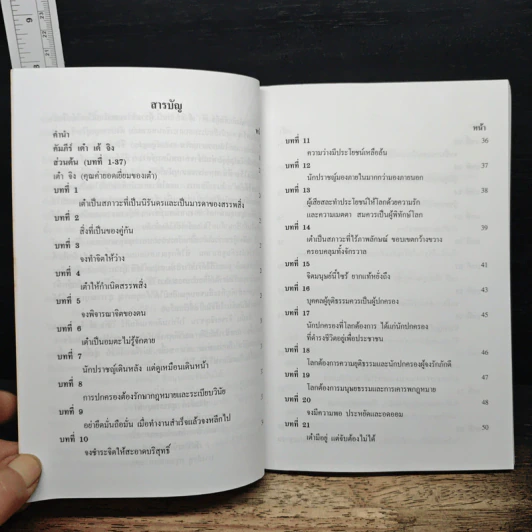 สารบัญ
คำนำ
คัมภีร์ เต๋า เต้ จิง
ส่วนต้น (บทที่ 1-37)
เต๋า จิง (คุณค่ายอดเยี่ยมของเต๋า)
บทที่ 1
เต๋าเป็นสภาวะที่เป็นนิรันดรและเป็นมารดาของสรรพสิ่ง
บทที่ 2
สิ่งที่เป็นของคู่กัน
บทที่ 3
จงทำจิตให้ว่าง
บทที่ 4
เต๋าให้กำเนิดสรรพสิ่ง
บทที่ 5
จงพิจารณาจิตของตน
บทที่ 6
เต๋าเป็นอมตะไม่รู้จักตาย
บทที่ 7
นักปราชญ์เดินหลัง แต่ดูเหมือนเดินหน้า
บทที่ 8
การปกครองต้องรักษากฎหมายและระเบียบวินัย
บทที่ 9
อย่ายึดมั่นถือมั่น เมื่อทำงานสำเร็จแล้วจงหลีกไป
บทที่ 10
จงชำระจิตให้สะอาดบริสุทธิ์
หน้า
บทที่ 11 36
ความว่างมีประโยชน์เหลือล้น
บทที่ 12 37
นักปราชญ์มองภายในมากกว่ามองภายนอก
บทที่ 13 38
ผู้เสียสละทำประโยชน์ให้โลกด้วยความรัก
และความเมตตา สมควรเป็นผู้พิทักษ์โลก
บทที่ 14 39
เต๋าเป็นสภาวะที่ไร้ภาพลักษณ์ ขอบเขตกว้างขวาง
ครอบคลุมทั้งจักรวาล
บทที่ 15 41
จิตมนุษย์นี้ไซร้ ยากแท้หยั่งถึง
บทที่ 16 43
บุคคลผู้ยุติธรรมควรเป็นผู้ปกครอง
บทที่ 17 45
นักปกครองที่โลกต้องการ ได้แก่นักปกครอง
ที่ดำรงชีวิตอยู่เพื่อประชาชน
บทที่ 18 46
โลกต้องการความยุติธรรมและนักปกครองผู้จงรักภักดี
บทที่ 19 47
โลกต้องการมนุษยธรรมและการเคารพกฎหมาย
บทที่ 20 48
จงมีความพอ ประหยัดและอดออม
บทที่ 21 50
เต๋ามีอยู่ แต่จับต้องไม่ได้